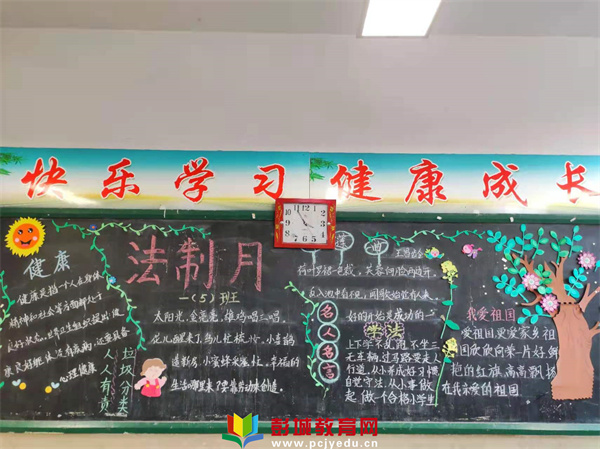 快乐学习 健康成长
健康
健康是指一个人在身体
精神和社会等方面都处于
良好
心理健康
垃圾分类
人人有责
法制月
一(5)班
太阳光,金亮亮,雄鸡唱三唱。
花儿醒来了,鸟儿忙梳妆,小喜鹊
造新房,小蜜蜂采蜜忙,幸福的
生活哪里来?要靠劳动来创造。
采莲曲
王昌龄
荷叶罗裙一色裁,芙蓉向脸两边开。
乱入池中看不见,闻歌始觉有人来。
名人名言
好的开始是成功的一
学法
上下学不迟到,不坐三
无车辆,过马路要走人
行道,从小养成好习惯
自觉守法,从小事做
起做一个合格小学生
我爱祖国
爱祖国更爱家乡祖
国欣欣向荣一片好鲜
艳的红旗高高飘扬
在我亲爱的祖国
彭城教育网
www.pcjyedu.cn